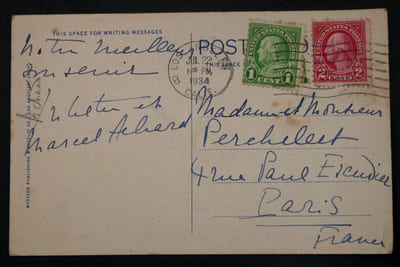 THIS SPACE FOR WRITING MESSAGES
Notre meilleur
souvenir
Juliette et
Marcel Achard
POST
JUL 22
PM
1934
UNITED STATES POSTAGE
1 CENT 1
UNITED STATES POSTAGE
2 CENTS 2
Madame et Monsieur
4 rue Paul Escudier
Paris
France